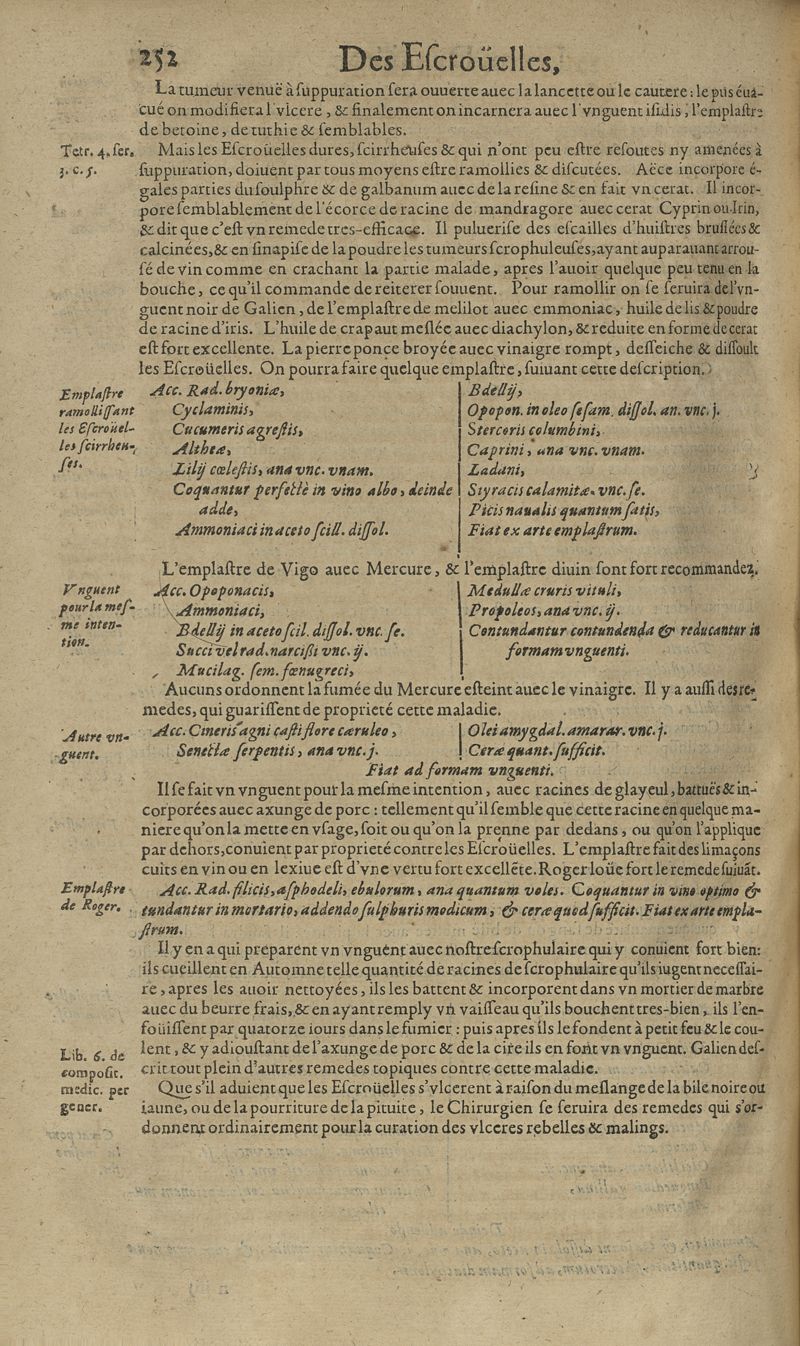 252 Des Eſcroüelles,
La tumeur venuë à ſuppuration ſera ouuerte auec la lancette ou le cautere : le pus éua-
cué on modifiera l'vlcere, & finalement on incarnera auec l'vnguent iſidis, l'emplaſtre
de betoine, de tuthie & ſemblables.
Tetr. 4. ſer.
3. c. 5.
Mais les Eſcroüelles dures, ſcirrheuſes & qui n'ont peu eſtre reſoutes ny amenées à
ſuppuration, doiuent par tous moyens eſtre ramollies & diſcutées. Aëce incorpore é-
gales parties du ſoulphre & de galbanum auec de la reſine & en fait vn cerat. Il incor-
pore ſemblablement de l'écorce de racine de mandragore auec cerat Cyprin ou Irin,
& dit que c'eſt vn remede tres-efficace. Il pulueriſe des eſcailles d'huiſtres bruſlées &
calcinées, & en ſinapiſe de la poudre les tumeurs ſcrophuleuſes, ayant auparauant arrou-
ſé de vin comme en crachant la partie malade, apres l'auoir quelque peu tenu en la
bouche, ce qu'il commande de reiterer ſouuent. Pour ramollir on ſe ſeruira de l'vn-
guent noir de Galien, de l'emplaſtre de melilot auec emmoniac, huile de lis & poudre
de racine d'iris. L'huile de crapaut meſlée auec diachylon, & reduite en forme de cerat
eſt fort excellente. La pierre ponce broyée auec vinaigre rompt, deſſeiche & diſſoult
les Eſcroüelles. On pourra faire quelque emplaſtre, ſuiuant cette deſcription.
Emplaſtre
ramolliſſant
les Eſcroüel-
les ſcirrheu-
ſes.
Acc. Rad. bryoniæ,
Cyclaminis,
Cucumeris agreſtis,
Altheæ,
Lilij cœleſtis, ana vnc. vnam.
Coquantur perfectè in vino albo, deinde
adde,
Ammoniaci in aceto ſcill. diſſol.
Bdellij,
Opopon. in oleo ſeſam. diſſol. an. vnc. j.
Stercoris columbini,
Caprini, ana vnc. vnam.
Ladani,
Styracis calamitæ. vnc. ſe.
Picis naualis quantum ſatis,
Fiat ex arte emplaſtrum.
L'emplaſtre de Vigo auec Mercure, & l'emplaſtre diuin ſont fort recommandez.
Vnguent
pour la meſ-
me inten-
tion.
Acc. Opoponacis,
Ammoniaci,
Bdellij in aceto ſcil. diſſol. vnc. ſe.
Succi vel rad. narciſsi vnc. ij.
Mucilag. ſem. fœnugreci,
Medullæ cruris vituli,
Propoleos, ana vnc. ij.
Contundantur contundenda & reducantur in
formam vnguenti.
Aucuns ordonnent la fumée du Mercure eſteint auec le vinaigre. Il y a auſſi des re-
medes, qui guariſſent de proprieté cette maladie.
Autre vn-
guent.
Acc. Cineris agni caſti flore cæruleo,
Senectæ ſerpentis, ana vnc. j.
Olei amygdal. amarar. vnc. j.
Ceræ quant. ſufficit.
Fiat ad formam vnguenti.
Il ſe fait vn vnguent pour la meſme intention, auec racines de glayeul, battuës & in-
corporées auec axunge de porc : tellement qu'il ſemble que cette racine en quelque ma-
niere qu'on la mette en vſage, ſoit ou qu'on la prenne par dedans, ou qu'on l'applique
par dehors, conuient par proprieté contre les Eſcroüelles. L'emplaſtre fait des limaçons
cuits en vin ou en lexiue eſt d'vne vertu fort excellẽte. Roger loüe fort le remede ſuiuãt.
Emplaſtre
de Roger.
Acc. Rad. filicis, aſphodeli, ebulorum, ana quantum voles. Coquantur in vino optimo &
tundantur in mortario, addendo ſulphuris modicum, & ceræ quod ſufficit. Fiat ex arte empla-
ſtrum.
Il y en a qui preparent vn vnguent auec noſtre ſcrophulaire qui y conuient fort bien:
ils cueillent en Automne telle quantité de racines de ſcrophulaire qu'ils iugent neceſſai-
re, apres les auoir nettoyées, ils les battent & incorporent dans vn mortier de marbre
auec du beurre frais, & en ayant remply vn vaiſſeau qu'ils bouchent tres-bien, ils l'en-
foüiſſent par quatorze iours dans le fumier : puis apres ils le fondent à petit feu & le cou-
lent, & y adiouſtant de l'axunge de porc & de la cire ils en font vn vnguent. Galien deſ-
crit tout plein d'autres remedes topiques contre cette maladie.
Lib. 6. de
compoſit.
medic. per
gener.
Que s'il aduient que les Eſcroüelles s'vlcerent à raiſon du meſlange de la bile noire ou
iaune, ou de la pourriture de la pituite, le Chirurgien ſe ſeruira des remedes qui s'or-
donnent ordinairement pour la curation des vlceres rebelles & malings.